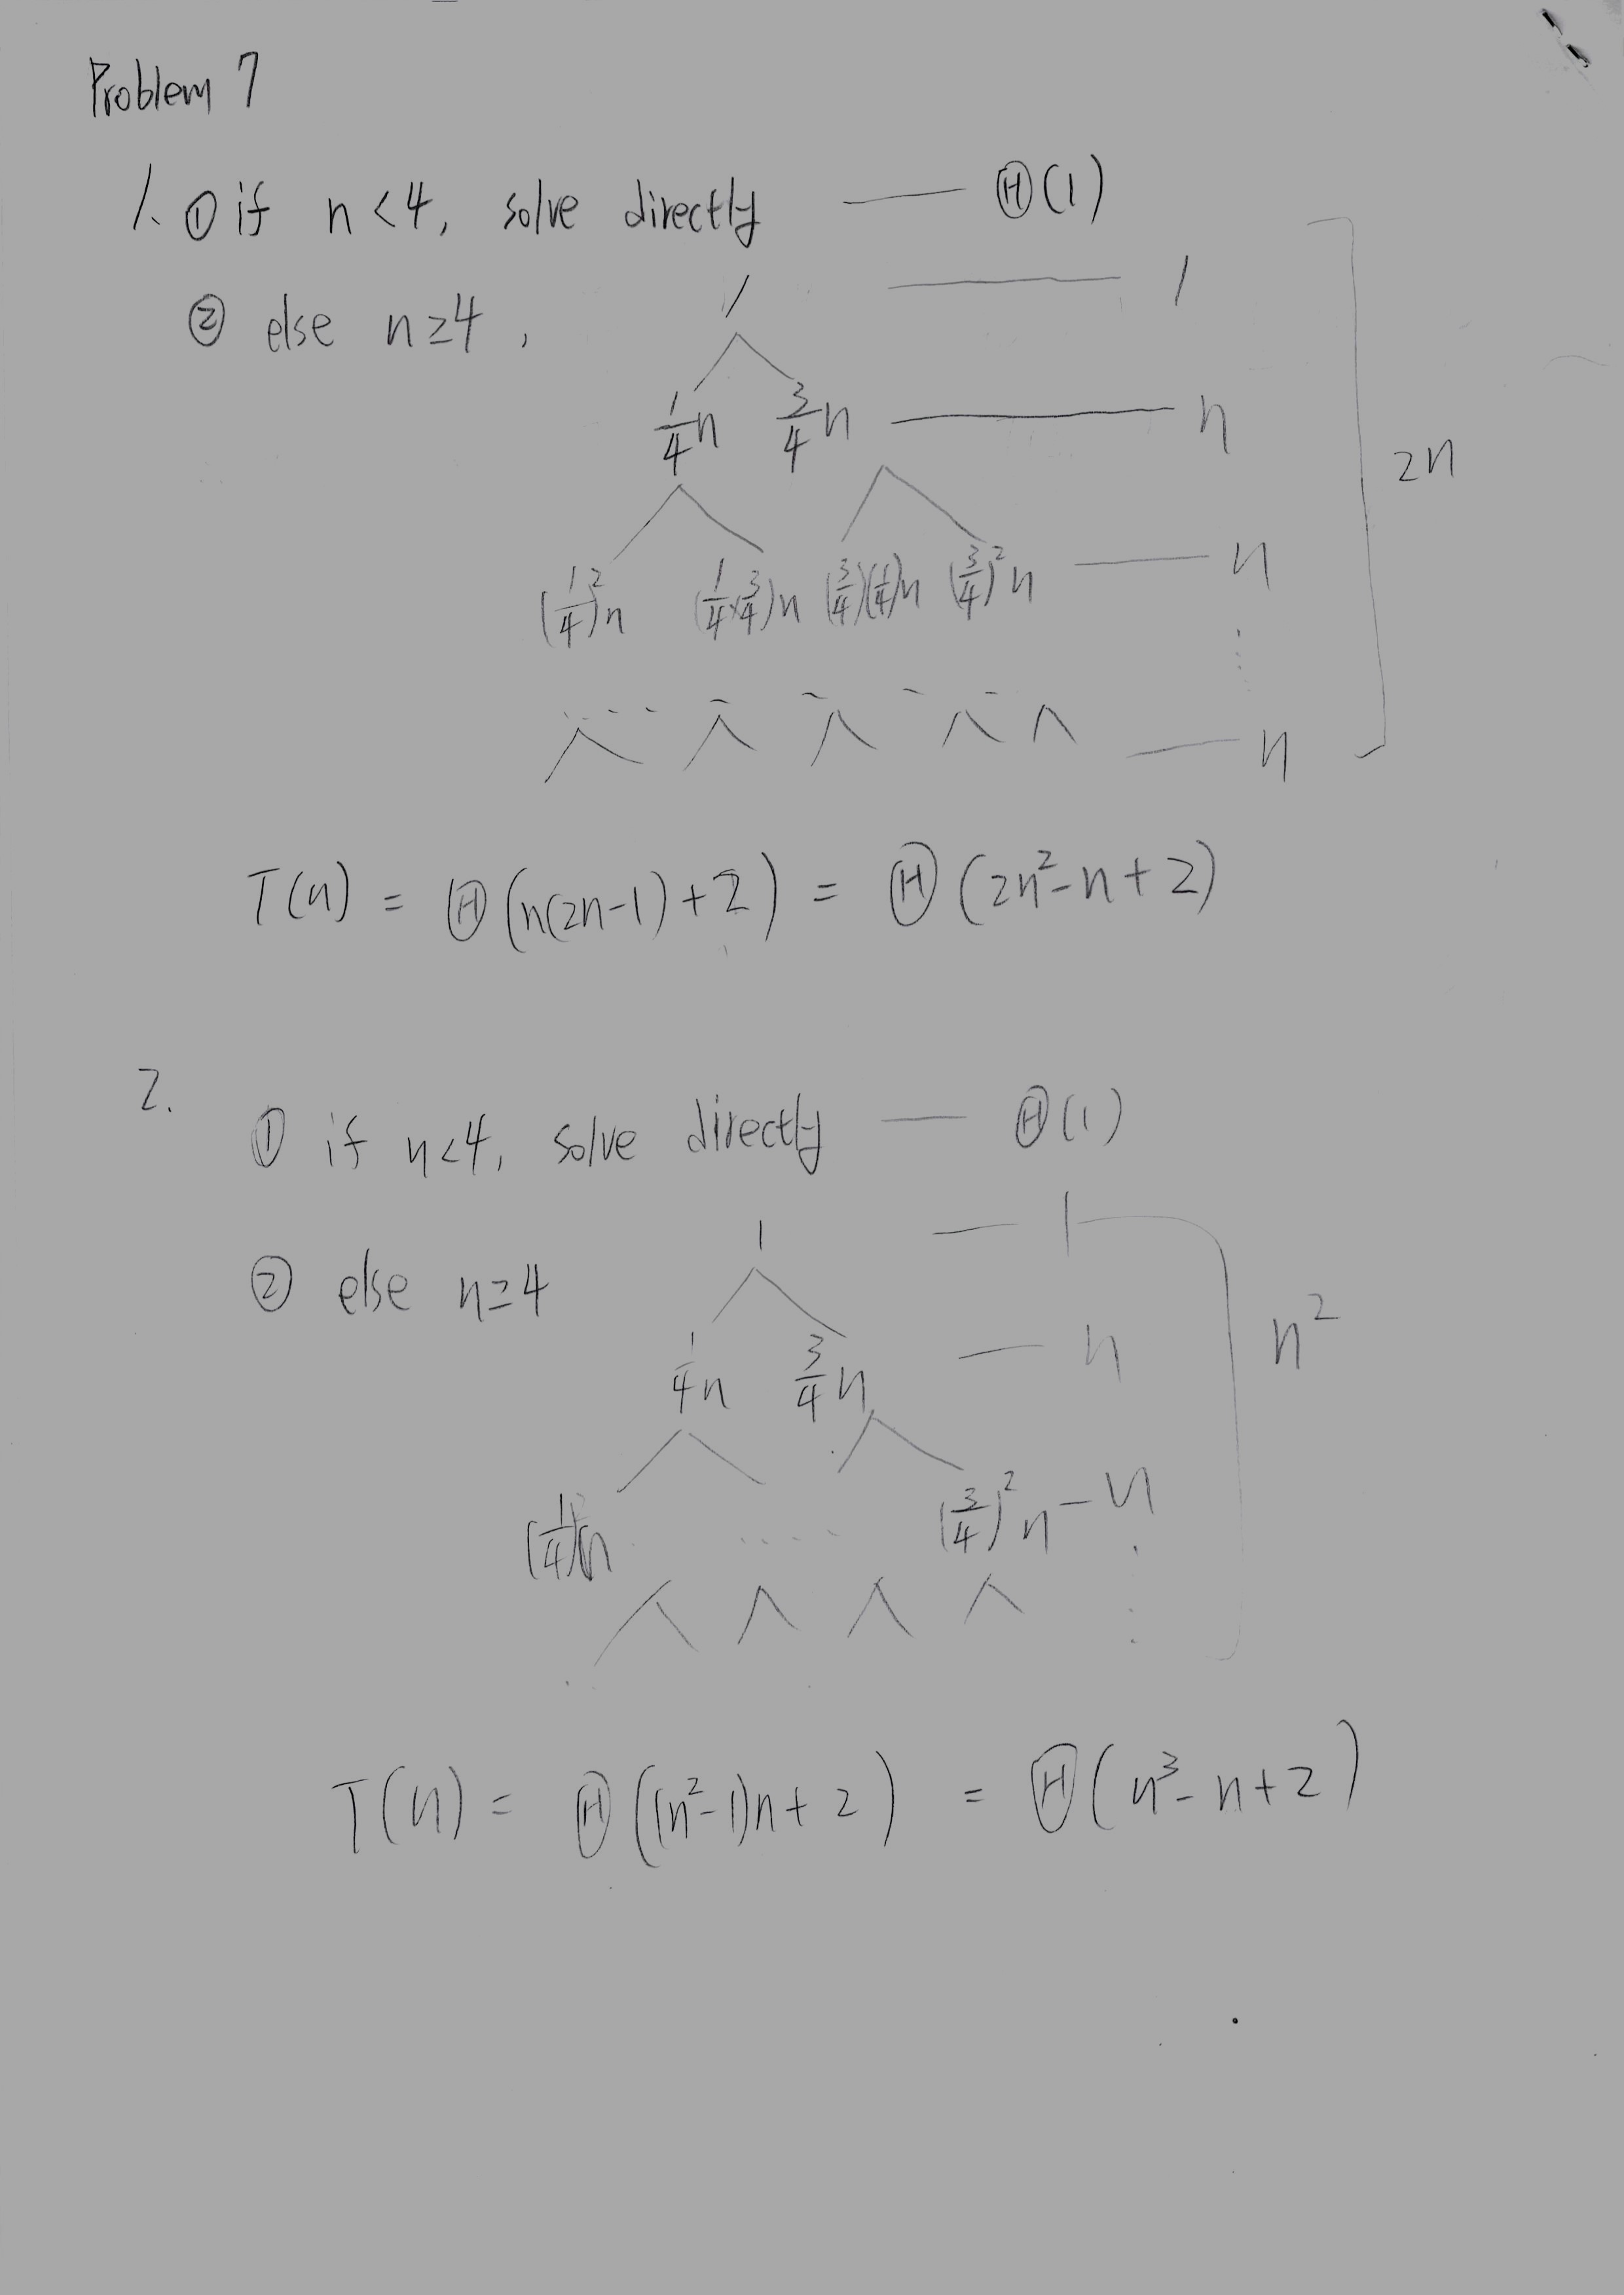 Problem 7
1. ① if n < 4, solve directly — Θ(1)
② else n ≥ 4, 1 — 1
1/4 n 3/4 n — n
2n
(1/4)²n (1/4)(3/4)n (3/4)(1/4)n (3/4)²n — n
— n
T(n) = Θ(n(2n-1)+2) = Θ(2n²-n+2)
2.
① if n<4, solve directly — Θ(1)
1 — 1
② else n≥4
n²
1/4 n 3/4 n — n
(1/4)²n ..... (3/4)²n — n
T(n) = Θ((n²-1)n+2) = Θ(n³-n+2)